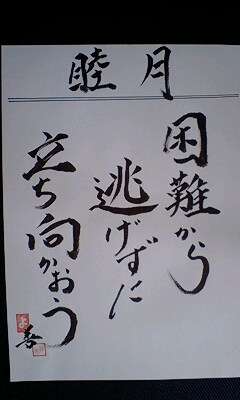 睦月
困難から
逃げずに
立ち向かおう